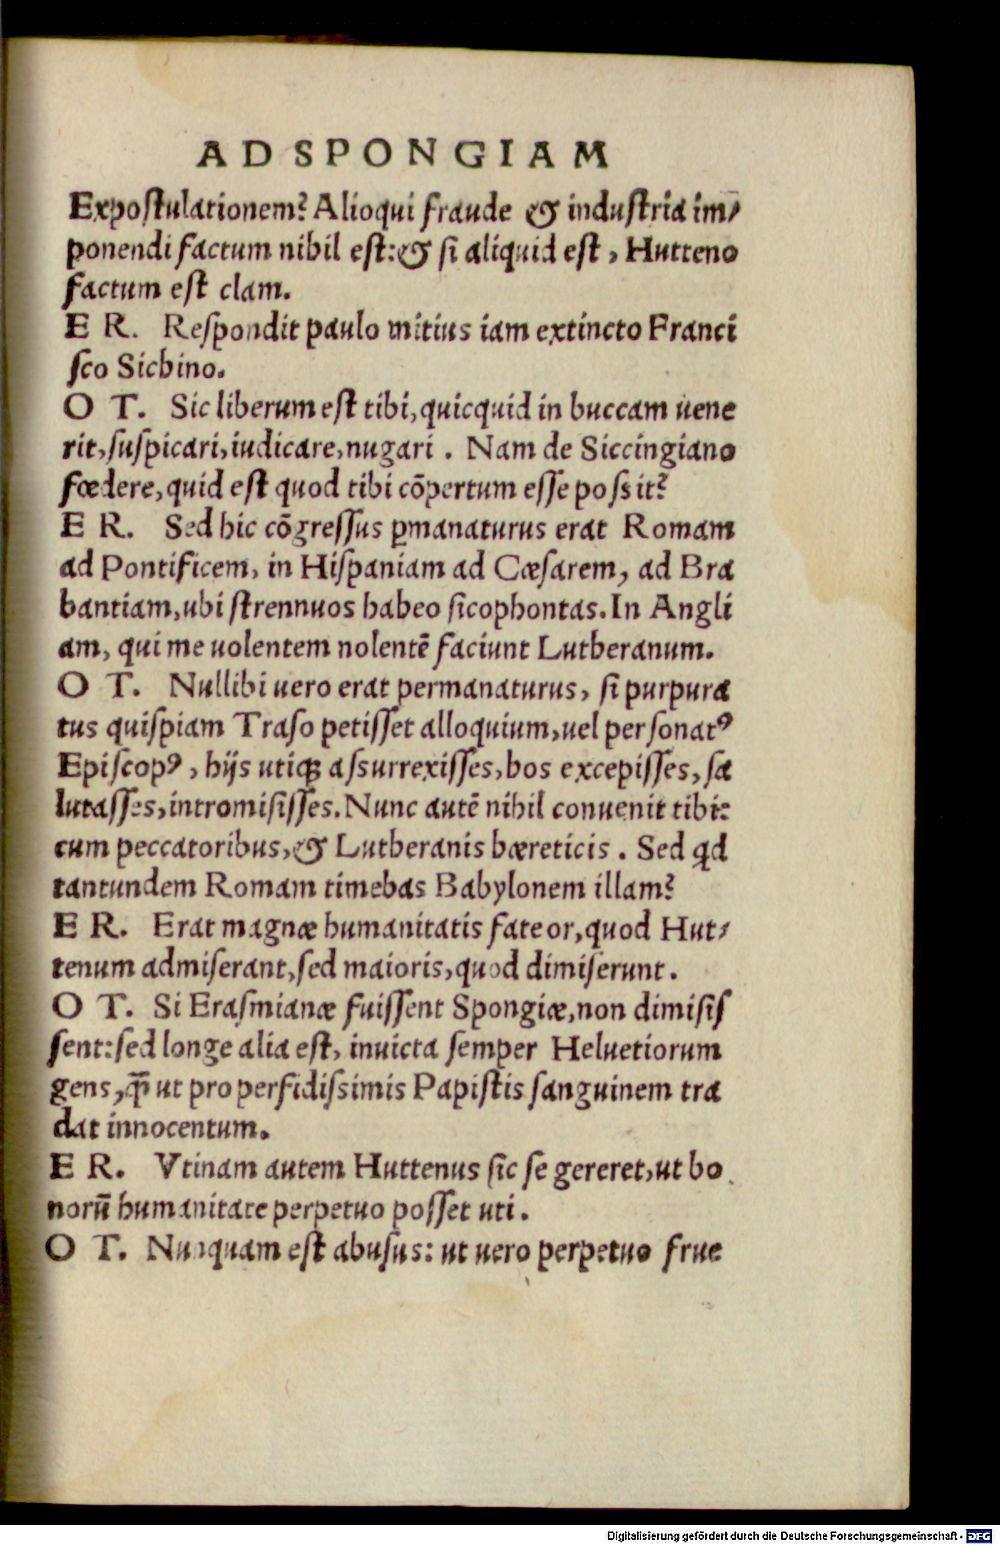 AD SPONGIAM
Expostulationem? Alioqui fraude & industria im⸗
ponendi factum nihil est: & si aliquid est, Hutteno
factum est clam.
E R. Respondit paulo mitius iam extincto Franci
sco Sichino.
O T. Sic liberum est tibi, quicquid in buccam uene
rit, suspicari, iudicare, nugari. Nam de Siccingiano
fœdere, quid est quod tibi cõpertum esse possit?
E R. Sed hic cõgressus ꝑmanaturus erat Romam
ad Pontificem, in Hispaniam ad Cæsarem, ad Bra
bantiam, ubi strennuos habeo sicophontas. In Angli
am, qui me uolentem nolentẽ faciunt Lutheranum.
O T. Nullibi uero erat permanaturus, si purpura
tus quispiam Traso petisset alloquium, uel personatꝰ
Episcopꝰ, hijs utiqꝫ assurrexisses, hos excepisses, sa
lutasses, intromisisses. Nunc autẽ nihil conuenit tibi:
cum peccatoribus, & Lutheranis hæreticis. Sed qđ
tantundem Romam timebas Babylonem illam?
E R. Erat magnæ humanitatis fateor, quod Hut⸗
tenum admiserant, sed maioris, quod dimiserunt.
O T. Si Erasmianæ fuissent Spongiæ, non dimisis
sent: sed longe alia est, inuicta semper Heluetiorum
gens, q̃ ut pro perfidissimis Papistis sanguinem tra
dat innocentum.
E R. Vtinam autem Huttenus sic se gereret, ut bo
norũ humanitate perpetuo posset uti.
O T. Nunquam est abusus: ut uero perpetuo frue
Digitalisierung gefördert durch die Deutsche Forschungsgemeinschaft - DFG